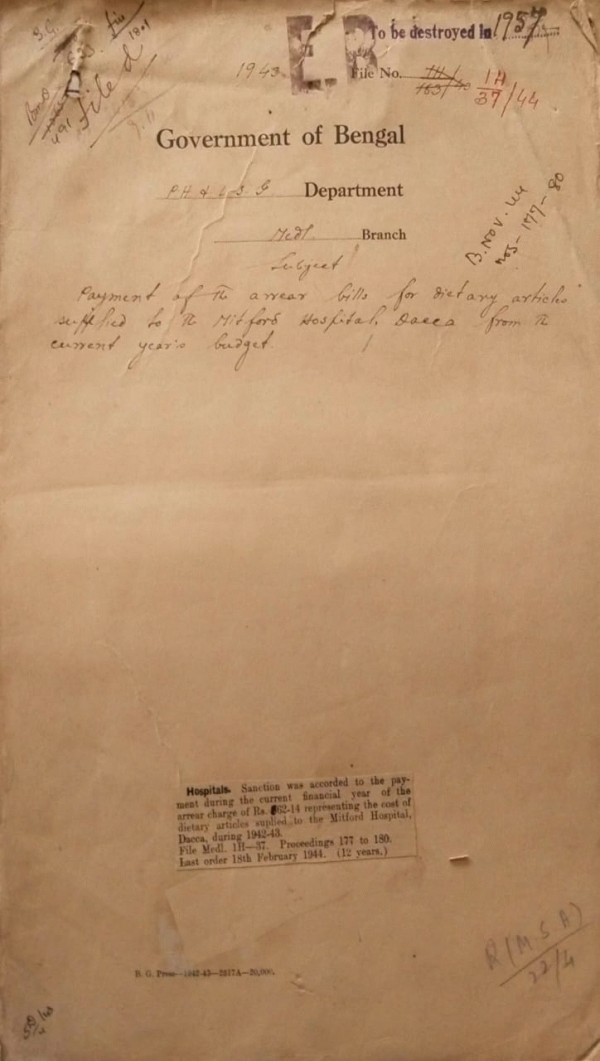 To be destroyed In 1957
1943 E.B File No. 1H/37/44
filed
Government of Bengal
PH & LSG Department
Medl. Branch
B. Nov. 44
nos - 177 - 80
Subject
Payment of the arrear bills for dietary articles
supplied to the Mitford Hospital, Dacca from the
current year's budget.
Hospitals. Sanction was accorded to the pay-
ment during the current financial year of the
arrear charge of Rs. 62-14 representing the cost of
dietary articles suplied to the Mitford Hospital,
Dacca, during 1942-43.
File Medl. 1H—37. Proceedings 177 to 180.
Last order 18th February 1944. (12 years.)
R(MSA)
22/4
B. G. Press—1942-43—2817A—50,000.